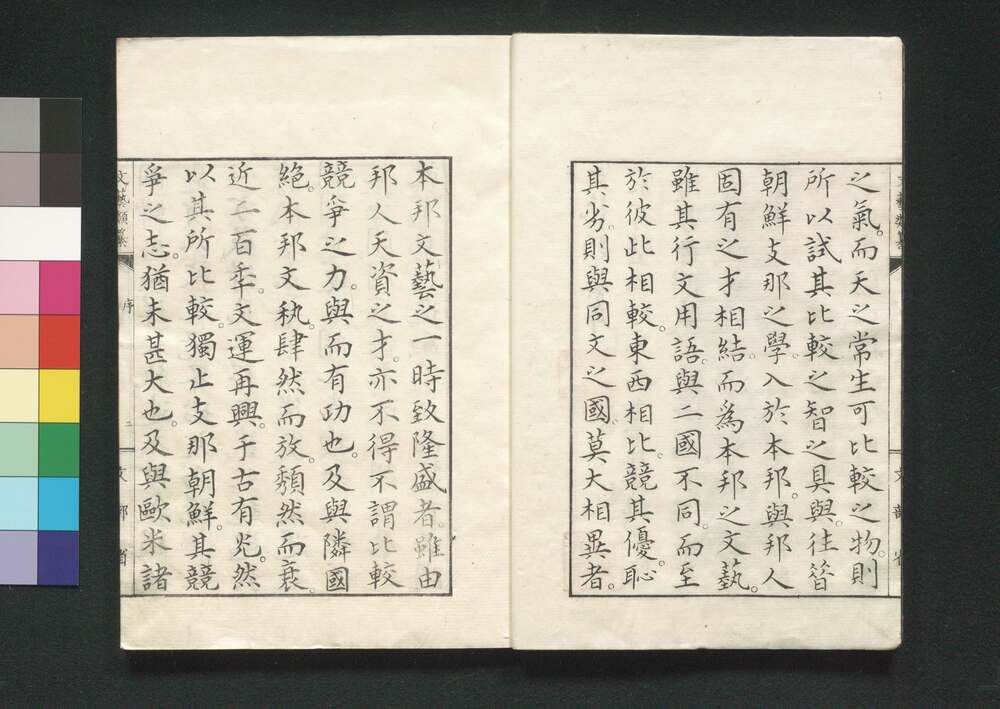 之氣。而天之常生可比較之物。則
所以試其比較之智之具與。往昔
朝鮮支那之學。入於本邦。與邦人
固有之才相結。而爲本邦之文藝。
雖其行文用語。與二國不同。而至
於彼此相較。東西相比。競其優。恥
其劣。則與同文之國。莫大相異者。
本邦文藝之一時致隆盛者。雖由
邦人天資之才。亦不得不謂比較
競爭之力。與而有功也。及與隣國
絶。本邦文執。肆然而放。頽然而衰。
近二百年。文運再興。于古有光。然
以其所比較。獨止支那朝鮮。其競
爭之志。猶未甚大也。及與歐米諸
文藝類纂
序
二
文部省